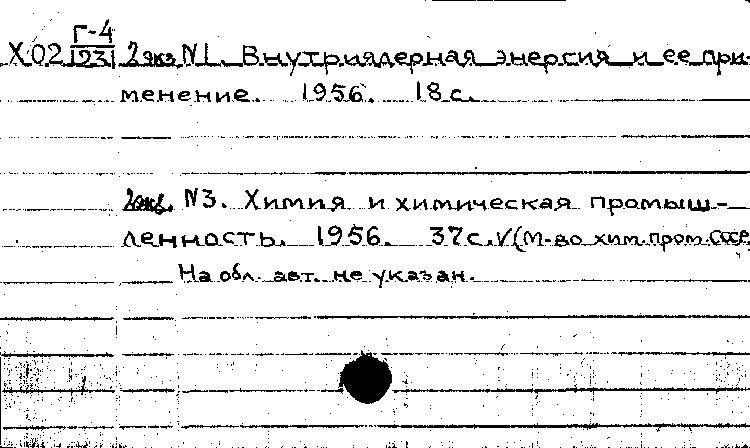 Г-4
Х02 1231 2 экз N1. Внутриядерная энергия и ее при-
менение. 1956. 18 с.
2 экз. N3. Химия и химическая промыш-
ленность. 1956. 37 с. V (М-во хим. пром. СССР
На обл. авт. не указан.